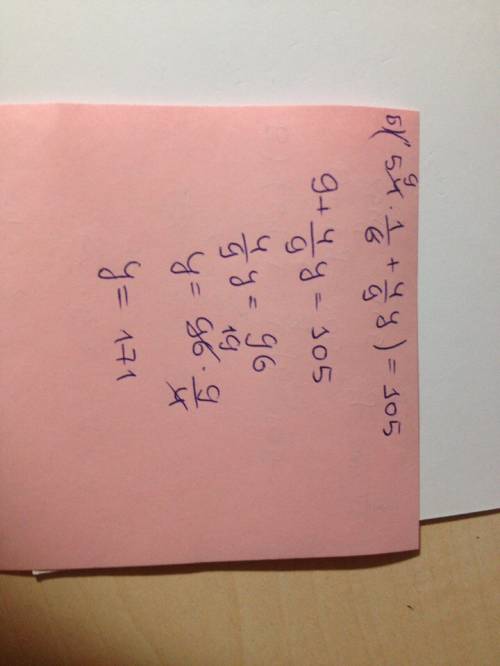 б) (54 9 · 1/6 + 4/9 y) = 105
9 + 4/9 y = 105
4/9 y = 96
y = 96 19 · 9/4
y = 171